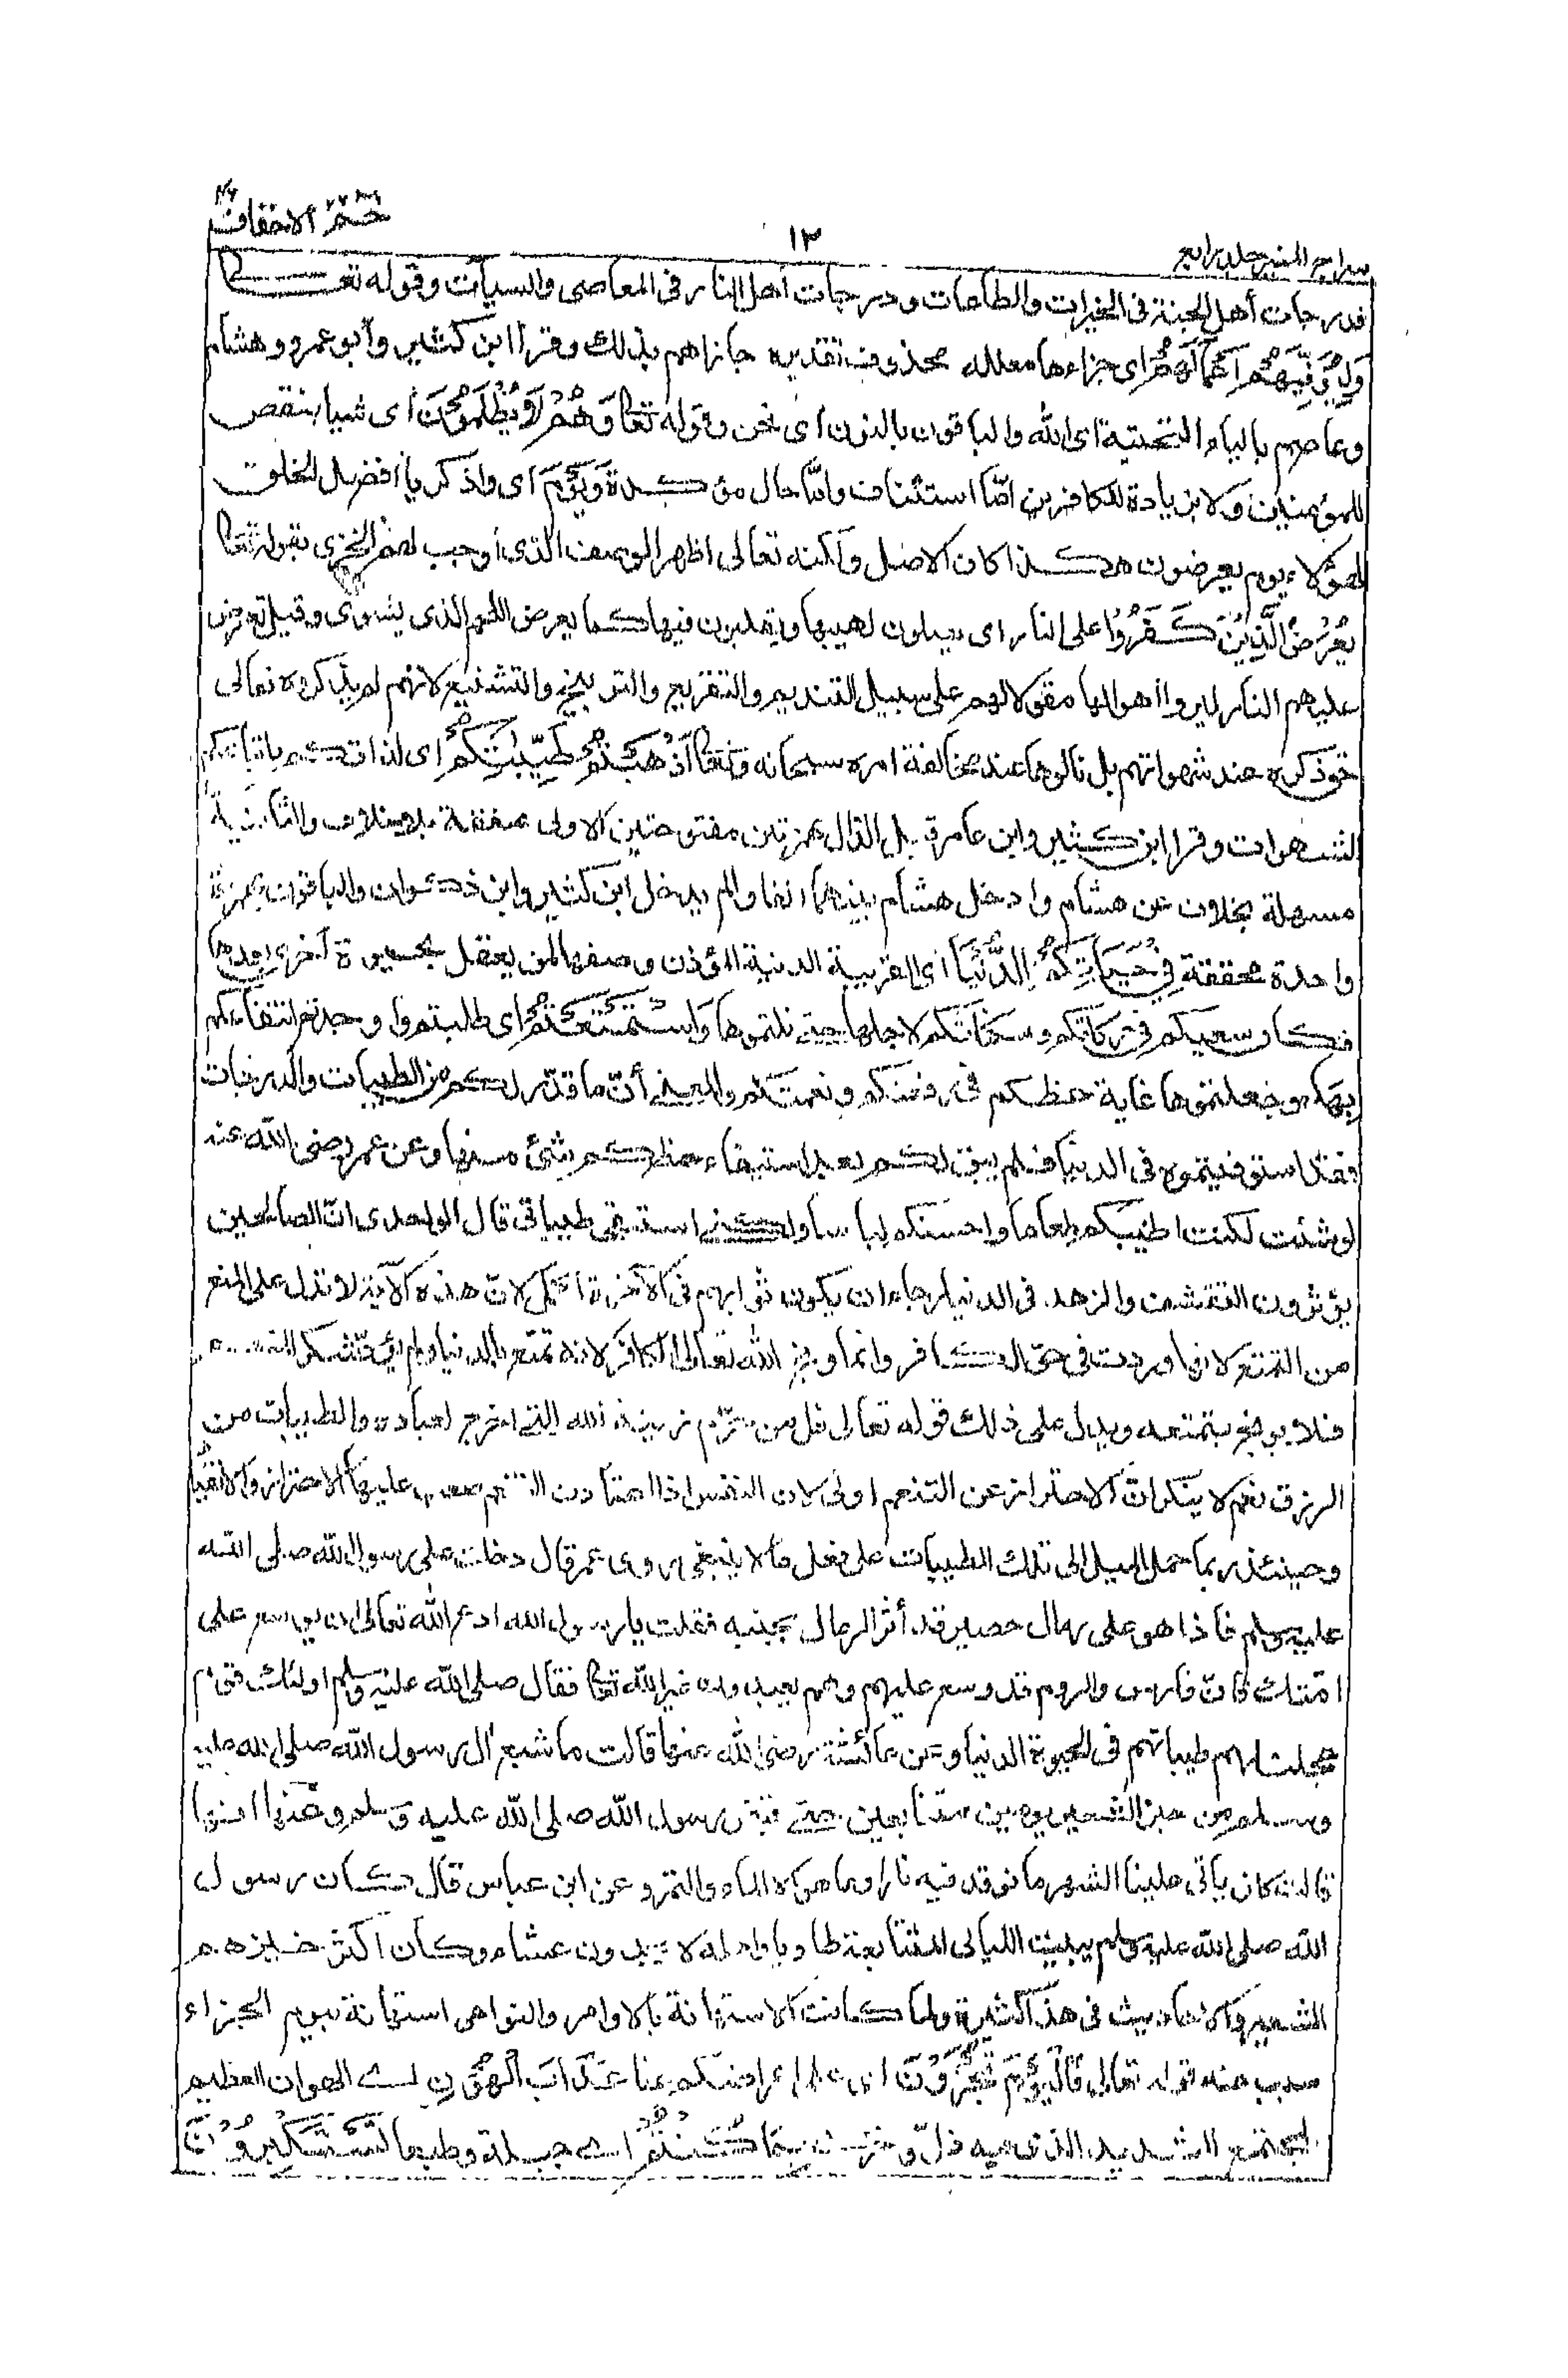 حٰمٓ الاحقاف ٤٦
١٢
سراج المنير جلد رابع
فدرجات أهل الجنة فى الخيرات والطاعات ودرجات أهل النار فى المعاصى والسيآت وقوله تعالى
وَلِيُوَفِّيَهُمْ اَعْمَالَهُمْ اى جزاءها معلله محذوف تقديره جازاهم بذلك وقرأ ابن كثير وأبو عمرو وهشام
وعاصم بالياء التحتية اى الله والباقون بالنون أى نحن وقوله تعالى وَهُمْ لَا يُظْلَمُوْنَ أى شيأ بنقص
للمؤمنين ولا بزيادة للكافرين امّا استئناف وامّا حال مؤكدة وَيَوْمَ اى واذكر يا أفضل الخلق
لهؤلاء يوم يعرضون هكذا كان الاصل ولكنه تعالى اظهر الوصف الذى أوجب لهم الخزى بقوله تعالى
يُعْرَضُ الَّذِيْنَ كَفَرُوْا على النار اى يصلون لهيبها ويقلبون فيها كما يعرض اللحم الذى يشوى وقيل تعرض
عليهم النار ليروا أهوالها مقولا لهم على سبيل التنديم والتقريع والتوبيخ والتشنيع لانهم لم يذكروه تعالى
حق ذكره عند شهواتهم بل نالوها عند مخالفة امره سبحانه وتعالى اَذْهَبْتُمْ طَيِّبٰتِكُمْ اى لذاتكم باتباعكم
الشهوات وقرأ ابن كثير وابن عامر قبل الذال بهمزتين مفتوحتين الاولى محققة بلا خلاف والثانية
مسهلة بخلاف عن هشام وادخل هشام بينهما الفا ولم يدخل ابن كثير وابن ذكوان والباقون بهمزة
واحدة محققة فِيْ حَيَاتِكُمُ الدُّنْيَا أى القريبة الدنية المؤذن وصفها لمن يعقل بحيوة أخرى بعدها
فكان سعيكم فى حركاتكم وسكناتكم لاجلها حتى نلتموها وَاسْتَمْتَعْتُمْ اى طلبتم واوجدتم انتفاعكم
بِهَا وجعلتموها غاية حظكم فى رفعتكم ونعمتكم والمعنى أنّ ما قدّر لكم من الطيبات والدرجات
فقد استوفيتموه فى الدنيا فلم يبق لكم بعد استيفاء حظكم شئ منها وعن عمر رضى الله عنه
لو شئت لكنت اطيبكم طعاما واحسنكم لباسا ولكنى استبقى طيباتى قال الواحدى انّ الصالحين
يؤثرون التقشف والزهد فى الدنيا رجاء ان يكون ثوابهم فى الآخرة أكمل لانّ هذه الآية لا تدل على المنع
من التمتع لانها وردت فى حق الكافر وانما وبخ الله تعالى الكافر لانه تمتع بالدنيا ولم يؤدّ شكر المنعم
فلا يوبخ بتمتعه ويدل على ذلك قوله تعالى قل من حرّم زينة الله التى اخرج لعباده والطيبات من
الرزق نعم لا ينكر انّ الاحتراز عن التنعم اولى لان النفس اذا اعتادت التنعم صعب عليها الاحتراز والانقياد
وحينئذ ربما حمل الميل الى تلك الطيبات على فعل ما لا ينبغى روى عمر قال دخلت على رسول الله صلى الله
عليه وسلم فاذا هو على رمال حصير قد أثر الرمال بجنبه فقلت يا رسول الله ادع الله تعالى ان يوسع على
امّتك فانّ فارس والروم قد وسع عليهم وهم يعبدون غير الله تعالى فقال صلى الله عليه وسلم اولئك قوم
عجلت لهم طيباتهم فى الحيوة الدنيا وعن عائشة رضى الله عنها قالت ما شبع آل رسول الله صلى الله عليه
وسلم من خبز الشعير يومين متتابعين حتى قبض رسول الله صلى الله عليه وسلم وعنها انها
قالت كان يأتى علينا الشهر ما نوقد فيه نارا وما هو الا الماء والتمر وعن ابن عباس قال كان رسول
الله صلى الله عليه وسلم يبيت الليالى المتتابعة طاويا واهله لا يجدون عشاء وكان اكثر خبزهم
الشعير والاحاديث فى هذا كثيرة ولما كانت الاستهانة بالاوامر والنواهى استهانة بيوم الجزاء
سبب عنه قوله تعالى فَالْيَوْمَ تُجْزَوْنَ اى على اعراضكم عنا عَذَابَ الْهُوْنِ اى الهوان العظيم
المجتمع الشديد الذى فيه ذلّ وخزى بِمَا كُنْتُمْ اى جبلة وطبعا تَسْتَكْبِرُوْنَ